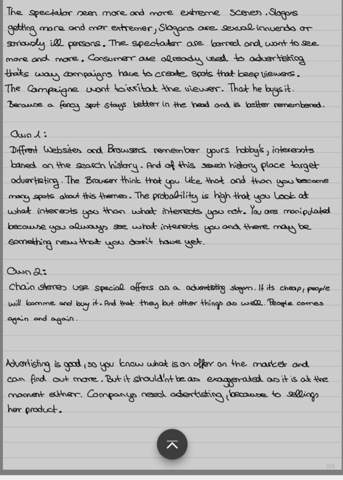 The spectator seen more and more extreme scenes. Slogans
getting more and mor extremer, Slogans are sexual inuendo or
seriously ill persons. The spectator are borred and want to see
more and more. Consumer are already used to advertisting
that's way campaigns have to create spots that keep viewers.
The campaigne want to irritat the viewer. That he buys it.
Because a fancy spot stays better in the head and is better remembered.
Own 1:
Diffrent Websites and Browsers remember yours hobby's, interessts
based on the search history. And of this search history place target
advertisting. The Browser think that you like that and than you become
many spots about this themen. The probability is high that you look at
what interests you than what interests you not. You are manipulated
because you always see what interests you and there may be
something new that you don't have yet.
Own 2:
Chain stores use special offers as a advertistig slogan. If its cheap, people
will komme and buy it. And that they but other things as well. People comes
again and again.
Advertisting is good, so you know what is on offer on the market and
can find out more. But it shouldn't be as exaggerated as it is at the
moment either. Companys need advertisting, because to sellings
her product.